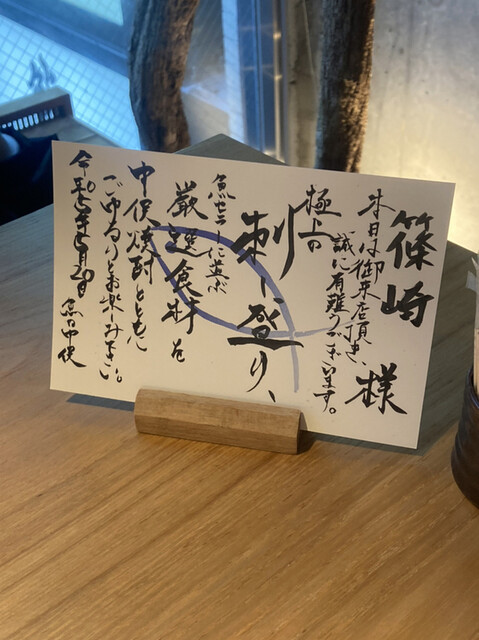 篠崎 様
本日は御来店頂き、
誠に有難うございます。
極上の
刺し盛り、
魚セラーに並ぶ
厳選食材を
中俣焼酎とともに
ごゆるりとお楽しみ下さい。
令和七年七月20日 魚中俣